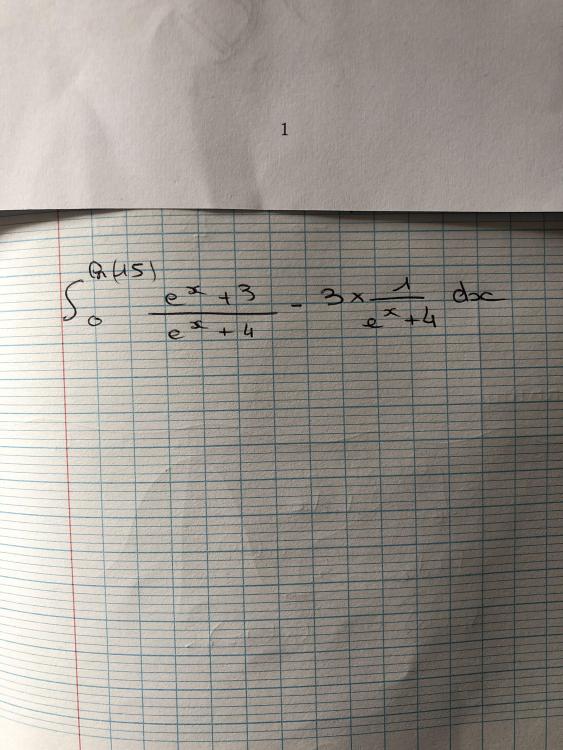 1
∫₀^{ln(15)} \frac{e^x + 3}{e^x + 4} - 3 × \frac{1}{e^x + 4} dx